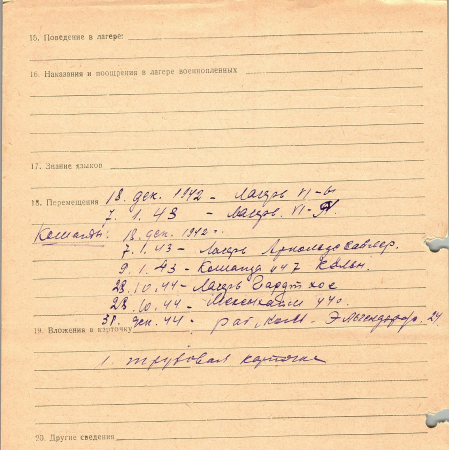 15. Поведение в лагере:
16. Наказания и поощрения в лагере военнопленных
17. Знание языков
18. Перемещения 18. дек. 1942 - Лагерь VI-
7. 1. 43 - Лагерь VI-А
Команды: 18. дек. 1942
7.1.43 - Лагерь
9.1.43 - Команда 447 Кёльн.
28.10.44 - Лагерь
28.10.44 -
31. дек. 44 - раб. ком.
19. Вложения в карточку
1. трудовая карточка
20. Другие сведения